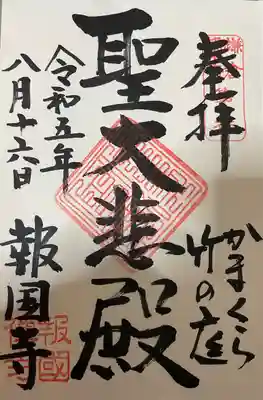 奉拝
かまくら
竹の庭
聖大悲殿
令和五年
八月十六日
報国寺